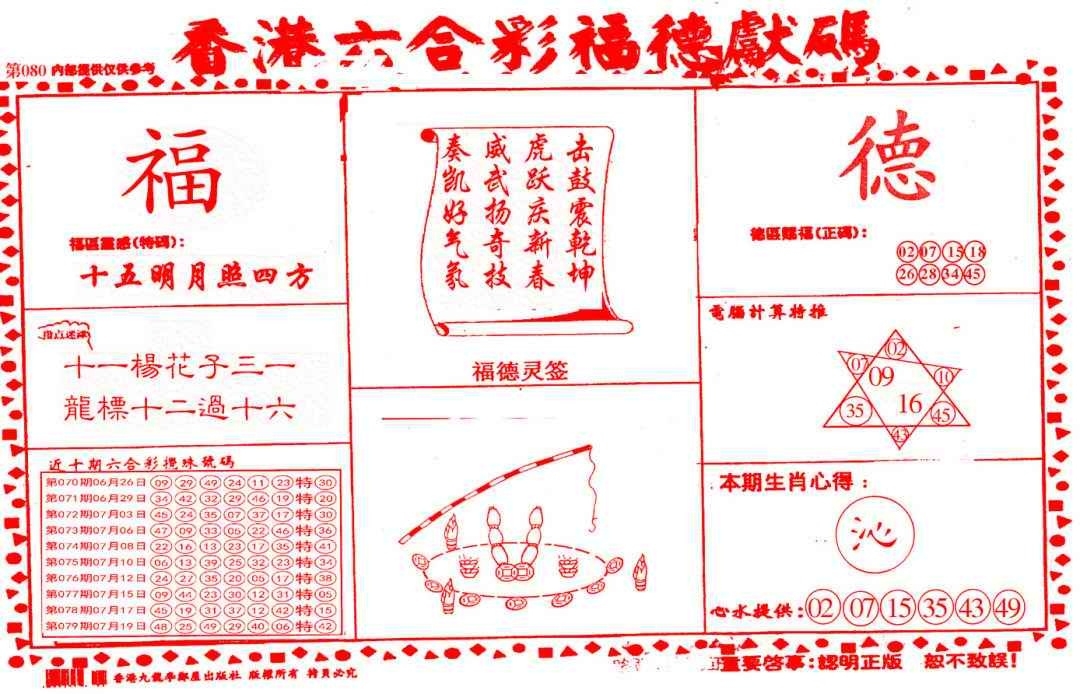 香港六合彩福德獻碼
第080 內部提供仅供参考
福
福區靈感(特碼):
十五明月照四方
指点迷津
十一楊花子三一
龍標十二過十六
近十期六合彩攪珠號碼
第070期06月26日 09 29 49 24 11 23 特 30
第071期06月29日 34 42 32 29 46 19 特 20
第072期07月03日 45 24 35 07 37 17 特 30
第073期07月06日 47 09 33 05 22 46 特 36
第074期07月08日 22 16 13 23 17 35 特 41
第075期07月10日 06 13 39 25 32 23 特 34
第076期07月12日 24 27 35 20 05 17 特 38
第077期07月15日 09 44 23 30 12 31 特 05
第078期07月17日 45 19 31 37 12 42 特 15
第079期07月19日 48 25 49 29 40 06 特 42
击鼓震乾坤
虎跃庆新春
威武扬奇技
奏凯好气氛
福德灵签
德
德區賜福(正碼):
02 07 15 18
26 28 34 45
電腦計算特推
02
07 09 10
35 16 45
43
本期生肖心得:
沁
心水提供: 02 07 15 35 43 49
香港九龍孛鄰屋出版社 版權所有 
重要啓事:認明正版 恕不致誤!